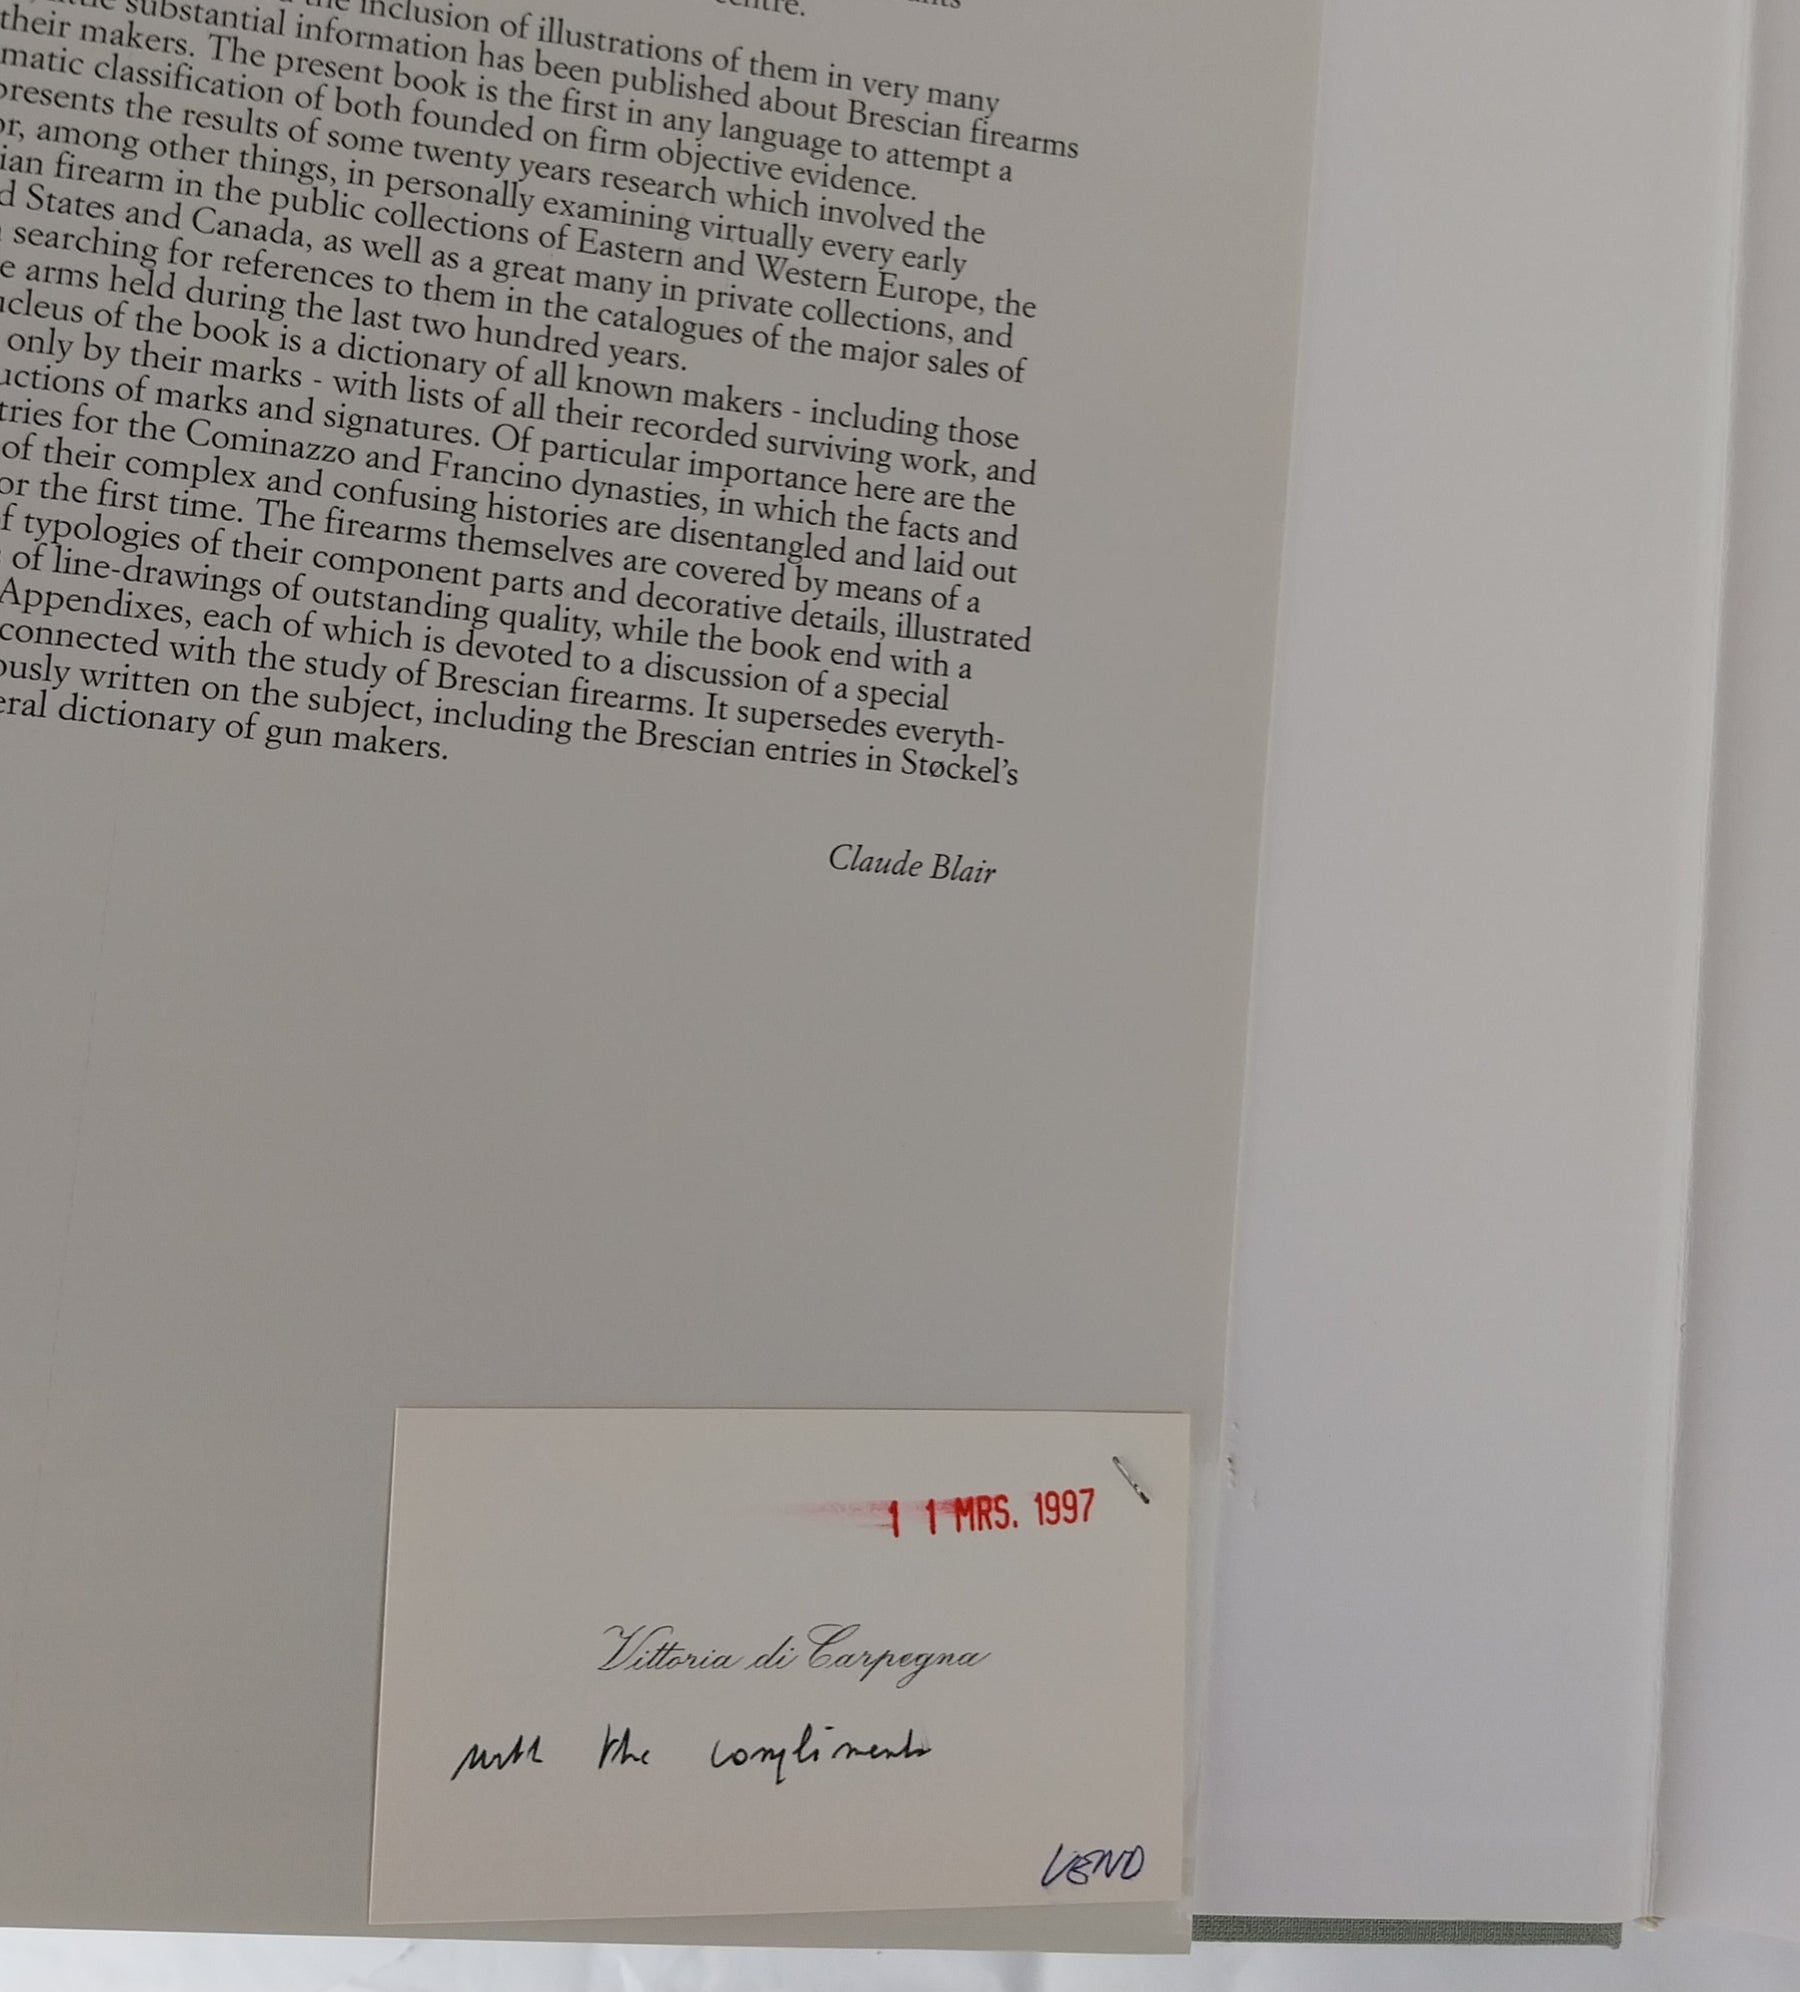 the inclusion of illustrations of them in very many
substantial information has been published about Brescian firearms
their makers. The present book is the first in any language to attempt a
matic classification of both founded on firm objective evidence.
presents the results of some twenty years research which involved the
or, among other things, in personally examining virtually every early
ian firearm in the public collections of Eastern and Western Europe, the
d States and Canada, as well as a great many in private collections, and
searching for references to them in the catalogues of the major sales of
e arms held during the last two hundred years.
ucleus of the book is a dictionary of all known makers - including those
only by their marks - with lists of all their recorded surviving work, and
uctions of marks and signatures. Of particular importance here are the
tries for the Cominazzo and Francino dynasties, in which the facts and
of their complex and confusing histories are disentangled and laid out
or the first time. The firearms themselves are covered by means of a
f typologies of their component parts and decorative details, illustrated
of line-drawings of outstanding quality, while the book end with a
Appendixes, each of which is devoted to a discussion of a special
connected with the study of Brescian firearms. It supersedes everyth-
ously written on the subject, including the Brescian entries in Støckel's
eral dictionary of gun makers.
Claude Blair
11 MRS. 1997
Vittoria di Carpegna
with the compliments
VEND